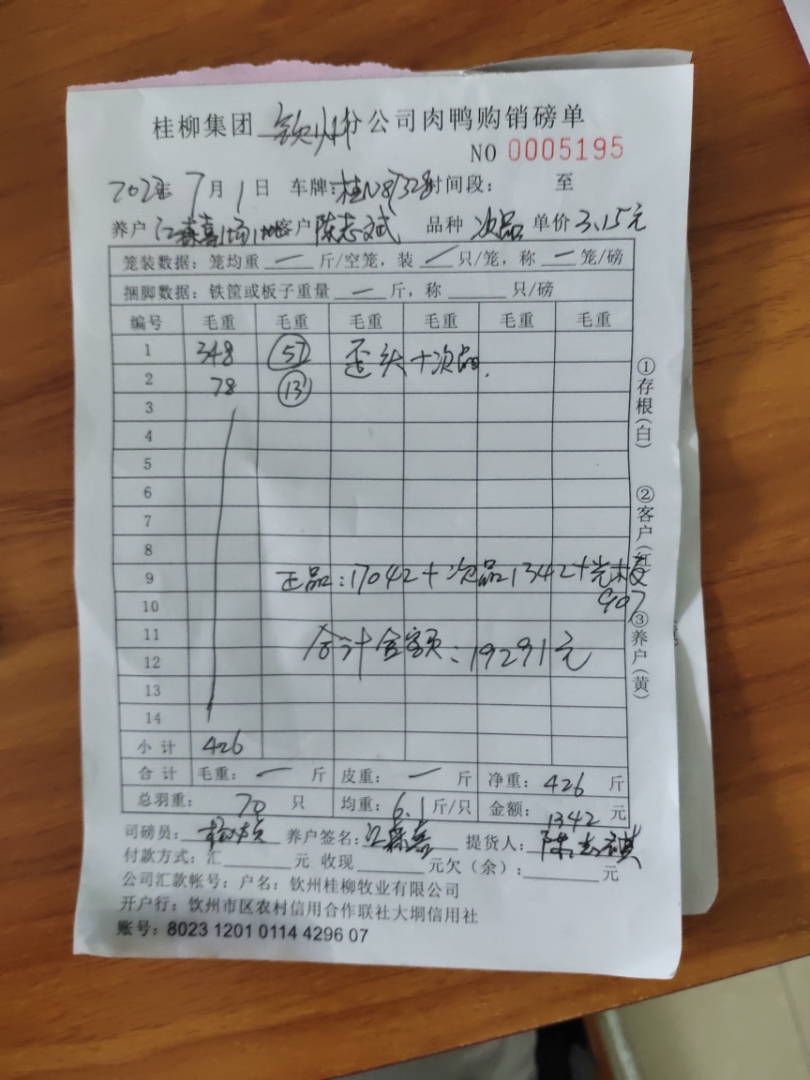 桂柳集团 钦州 分公司肉鸭购销磅单
NO 0005195
7月1日 车牌: 时间段: 至
养户 客户 陈志斌 品种 次品 单价 3.15元
笼装数据: 笼均重 一 斤/空笼, 装 / 只/笼, 称 一 笼/磅
捆脚数据: 铁筐或板子重量 一 斤, 称 只/磅
编号 毛重 毛重 毛重 毛重 毛重 毛重
1 348 57 歪头+次品.
2 78 13
3
4
5
6
7
8
9 正品:17042+次品1342+光
10 907
11
12 合计金额:19291元
13
14
小计 426
合计 毛重: 一 斤 皮重: 一 斤 净重: 426 斤
总羽重: 70 只 均重: 6.1 斤/只 金额: 1342 元
司磅员: 养户签名: 江森喜 提货人:
付款方式:汇 元 收现 元欠(余): 元
公司汇款帐号: 户名: 钦州桂柳牧业有限公司
开户行: 钦州市区农村信用合作联社大垌信用社
账号: 8023 1201 0114 4296 07
①存根(白)
②客户(红)
③养户(黄)